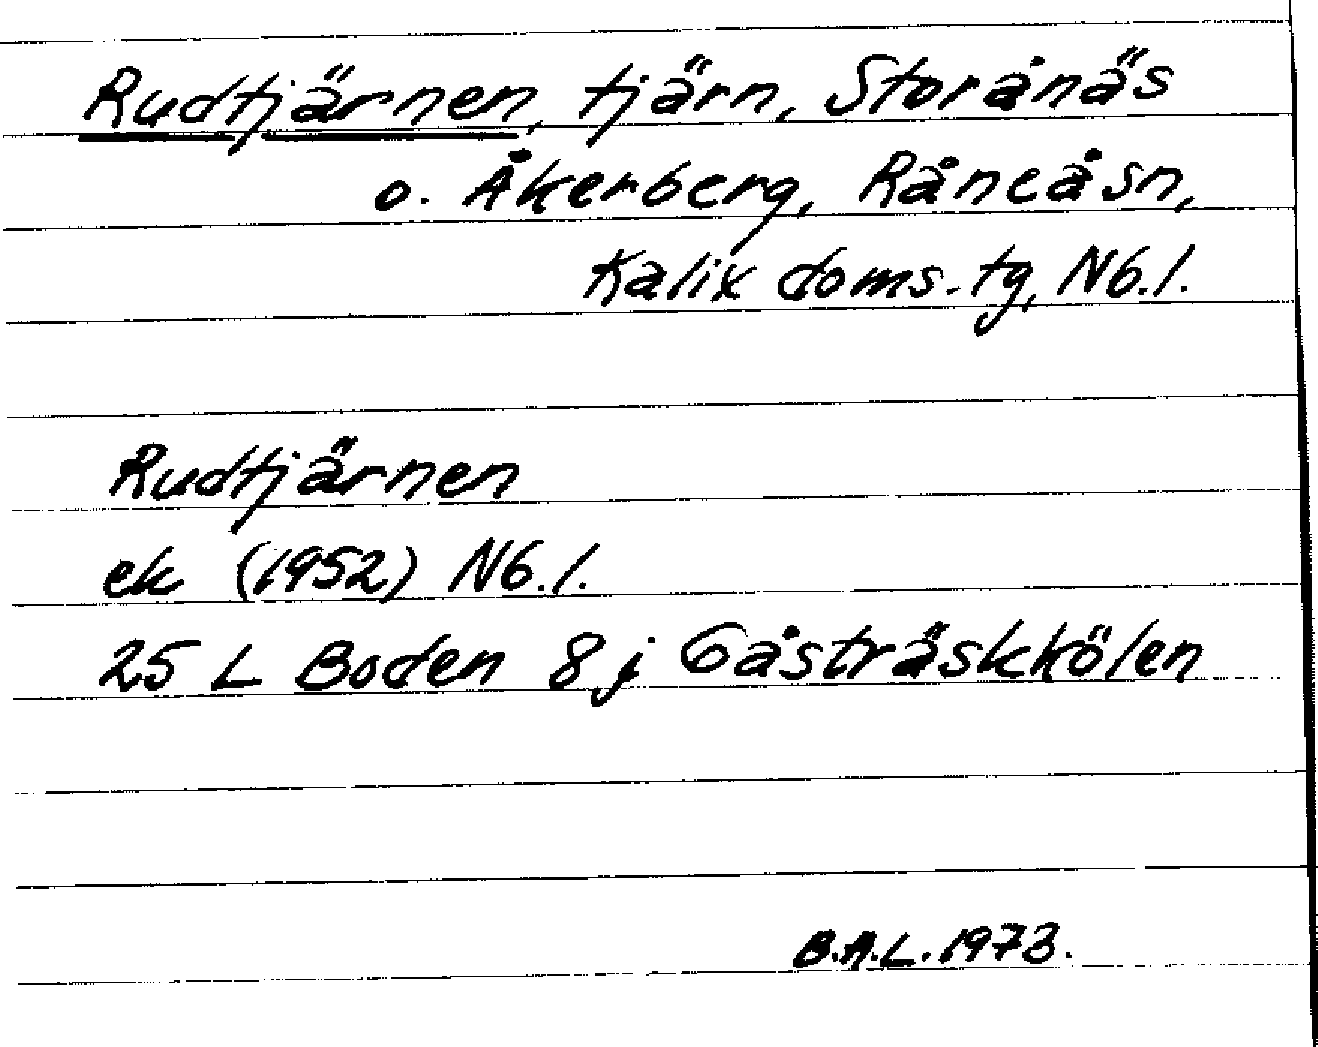 Rudtjärnen, tjärn, Storånäs
o. Åkerberg, Råneåsn,
Kalix doms.tg, Nb.l.
Rudtjärnen
ek (1952) Nb.l.
25 L Boden 8j Gåsträskkölen
B.A.L. 1973.